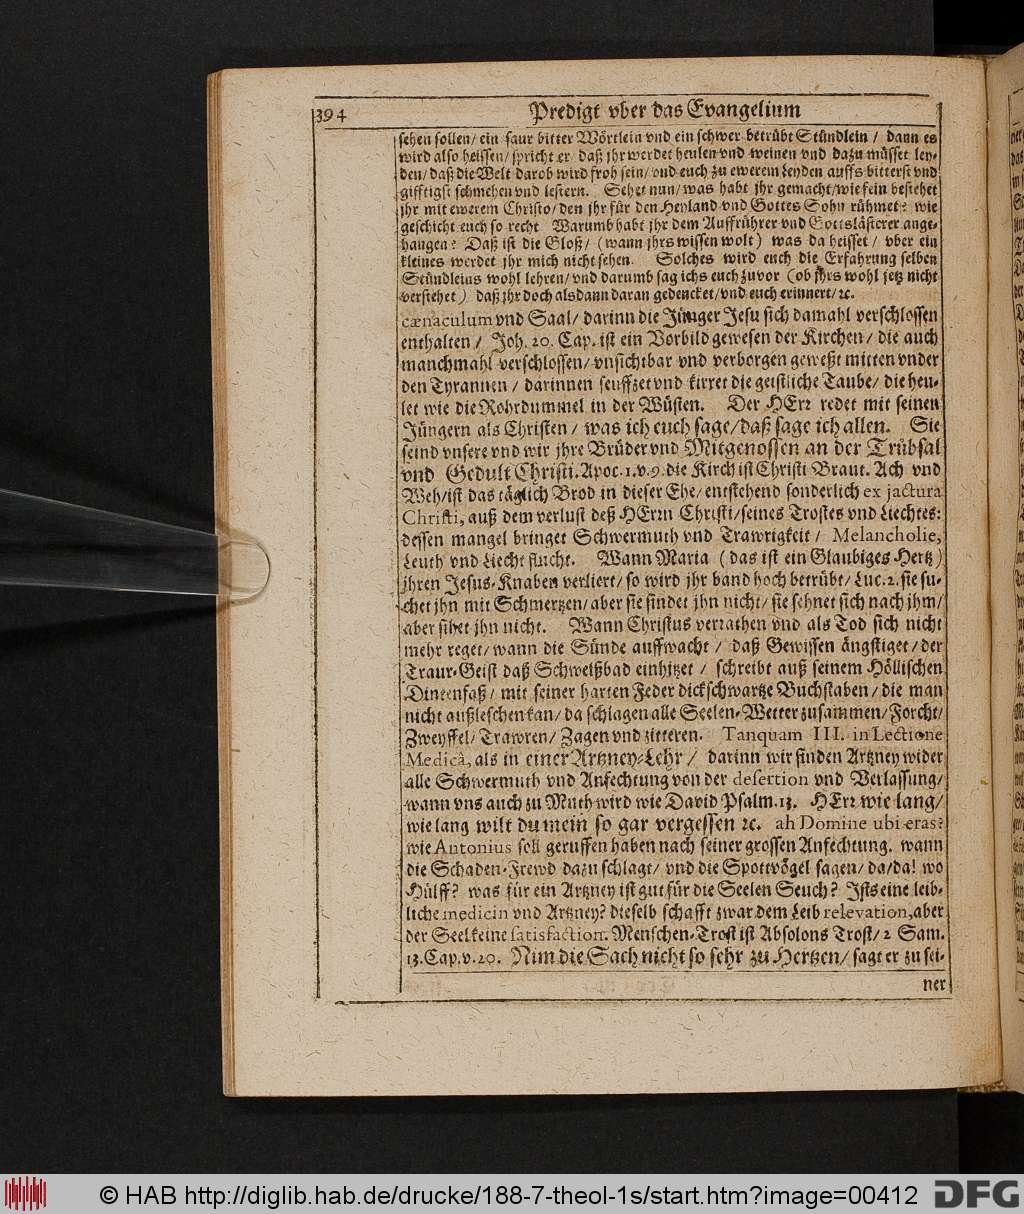 394
Predigt vber das Evangelium
sehen sollen/ ein saur bitter Wörtlein vnd ein schwer betrübt Stündlein / dann es
wird also heissen/ spricht er daß jhr werdet heulen vnd weinen vnd dazu müsset ley-
den/ daß die Welt darob wird froh sein/ vnd euch zu ewerem Leyden auffs bitterst vnd
gifftigst schmehen vnd lestern. Sehet nun/ was habt jhr gemacht/ wie fein bestehet
jhr mit ewerem Christo/ den jhr für den Heyland vnd Gottes Sohn rühmet? wie
geschicht euch so recht Warumb habt jhr dem Auffrührer vnd Gottslästerer ange-
hangen? Daß ist die Gloß/ (wann jhrs wissen wolt) was da heisset / vber ein
kleines werdet jhr mich nicht sehen. Solches wird euch die Erfahrung selben
Stündleins wohl lehren/ vnd darumb sag ichs euch zuvor (ob jhrs wohl jetz nicht
verstehet) daß jhr doch alsdann daran gedencket/ vnd euch erinnert/ ꝛc.
cænaculum vnd Saal/ darinn die Jünger Jesu sich damahl verschlossen
enthalten / Joh. 20. Cap. ist ein Vorbild gewesen der Kirchen/ die auch
manchmahl verschlossen/ vnsichtbar vnd verborgen geweßt mitten vnder
den Tyrannen / darinnen seuffzet vnd kirret die geistliche Taube/ die heu-
let wie die Rohrdummel in der Wüsten. Der HErr redet mit seinen
Jüngern als Christen/ was ich euch sage/ daß sage ich allen. Sie
seind vnsere vnd wir jhre Brüder vnd Mitgenossen an der Trübsal
vnd Gedult Christi. Apoc. 1. v. 9. die Kirch ist Christi Braut. Ach vnd
Weh/ ist das täglich Brod in dieser Ehe/ entstehend sonderlich ex jactura
Christi, auß dem verlust deß HErrn Christi/ seines Trostes vnd Liechtes:
dessen mangel bringet Schwermuth vnd Trawrigkeit / Melancholie,
Leuth vnd Liecht flucht. Wann Maria (das ist ein Glaubiges Hertz)
jhren Jesus-Knaben verliert/ so wird jhr band hoch betrübt/ Luc. 2. sie su-
chet jhn mit Schmertzen/ aber sie findet jhn nicht/ sie sehnet sich nach jhm/
aber sihet jhn nicht. Wann Christus verrathen vnd als Tod sich nicht
mehr reget/ wann die Sünde auffwacht / daß Gewissen ängstiget/ der
Traur-Geist daß Schweißbad einhitzet / schreibt auß seinem Höllischen
Dintenfaß/ mit seiner harten Feder dickschwartze Buchstaben/ die man
nicht außleschen kan/ da schlagen alle Seelen-Wetter zusammen/ Forcht/
Zweyffel/ Trawren/ Zagen vnd zitteren. Tanquam III. in Lectione
Medicâ, als in einer Artzney-Lehr / darinn wir finden Artzney wider
alle Schwermuth vnd Anfechtung von der desertion vnd Verlassung/
wann vns auch zu Muth wird wie David Psalm. 13. HErr wie lang/
wie lang wilt du mein so gar vergessen ꝛc. ah Domine ubi eras?
wie Antonius soll geruffen haben nach seiner grossen Anfechtung. wann
die Schaden-Frewd dazu schlagt/ vnd die Spottvögel sagen/ da/ da! wo
Hülff? was für ein Artzney ist gut für die Seelen Seuch? Ists eine leib-
liche medicin vnd Artzney? dieselb schafft zwar dem Leib relevation, aber
der Seel keine satisfaction. Menschen-Trost ist Absolons Trost/ 2 Sam.
13. Cap. v. 20. Nim die Sach nicht so sehr zu Hertzen/ sagt er zu sei-
ner
© HAB http://diglib.hab.de/drucke/188-7-theol-1s/start.htm?image=00412
DFG